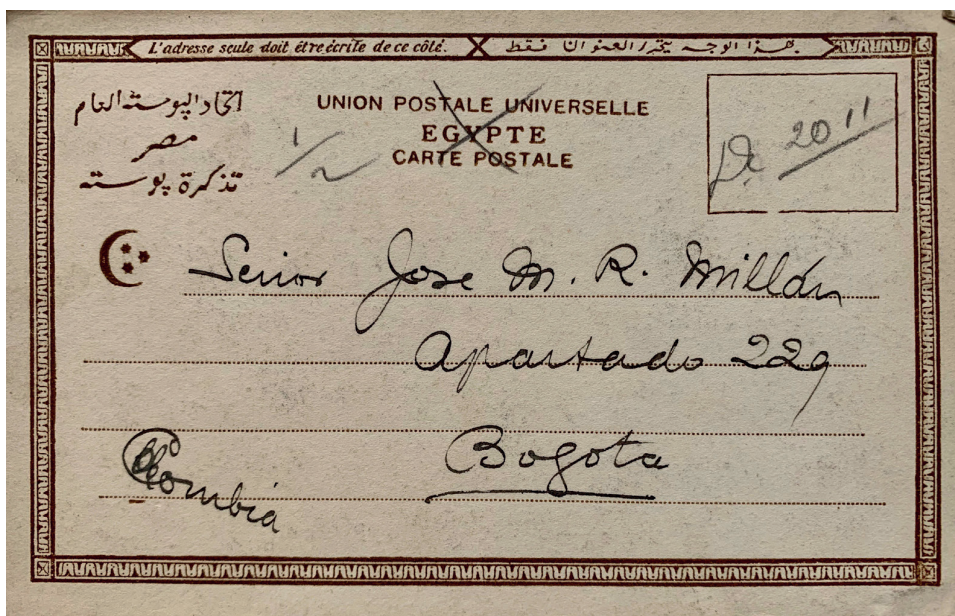 L'adresse seule doit être écrite de ce côté.
بهذا الوجه يحرر العنوان فقط
اتحاد البوسته العام
مصر
تذكرة بوسته
UNION POSTALE UNIVERSELLE
EGYPTE
CARTE POSTALE
1/2
20
Senior Jose M. R. Millán
Apartado 229
Bogota
Colombia